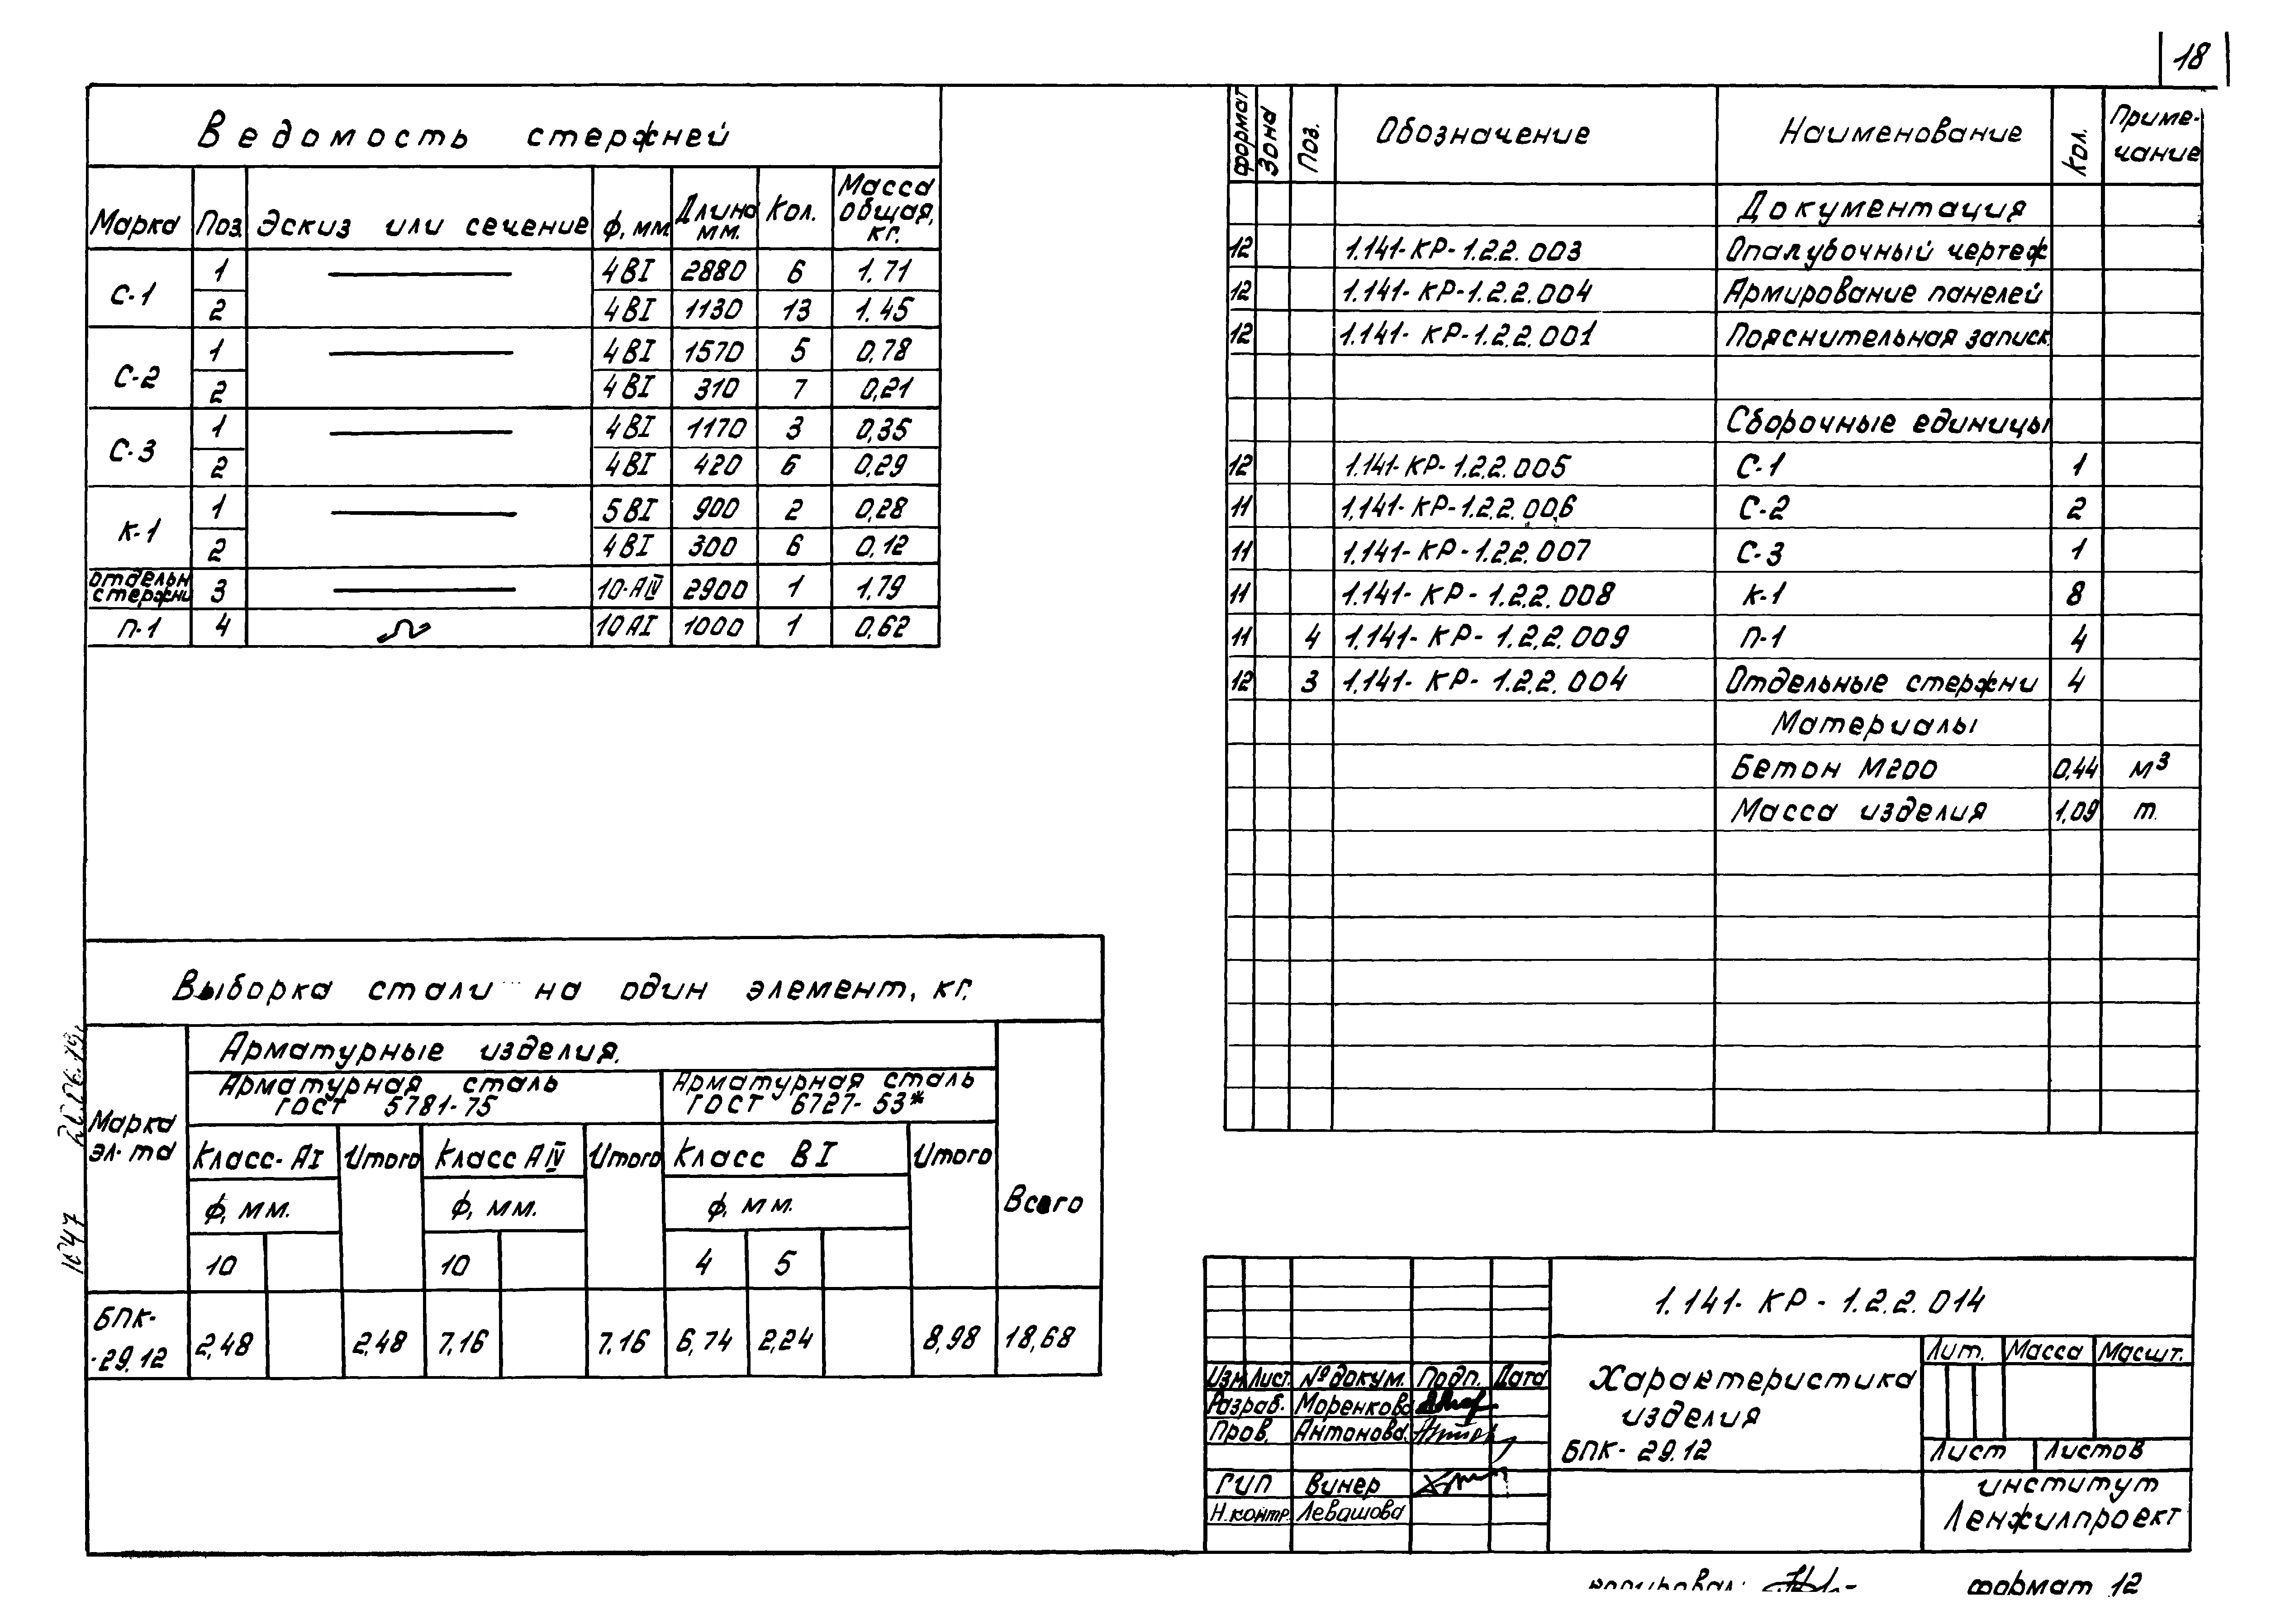 18
Ведомость стержней
Марка Поз. Эскиз или сечение ф, мм. Длина мм. Кол. Масса общая, кг.
С-1 1 4ВI 2880 6 1.71
2 4ВI 1130 13 1.45
С-2 1 4ВI 1570 5 0,78
2 4ВI 310 7 0,21
С-3 1 4ВI 1170 3 0,35
2 4ВI 420 6 0,29
К-1 1 5ВI 900 2 0,28
2 4ВI 300 6 0,12
отдельн стержни 3 10-АIV 2900 1 1,79
П-1 4 10АI 1000 1 0,62
формат Зона Поз. Обозначение Наименование Кол. Приме-
чание
Документация
12 1.141-КР-1.2.2.003 Опалубочный чертеж
12 1.141-КР-1.2.2.004 Армирование панелей
12 1.141-КР-1.2.2.001 Пояснительная записк.
Сборочные единицы
12 1.141-КР-1.2.2.005 С-1 1
11 1.141-КР-1.2.2.006 С-2 2
11 1.141-КР-1.2.2.007 С-3 1
11 1.141-КР-1.2.2.008 К-1 8
11 4 1.141-КР-1.2.2.009 П-1 4
12 3 1.141-КР-1.2.2.004 Отдельные стержни 4
Материалы
Бетон М200 0,44 м3
Масса изделия 1,09 т.
Выборка стали на один элемент, кг.
Марка эл-та Арматурные изделия. Всего
Арматурная сталь ГОСТ 5781-75 Арматурная сталь ГОСТ 6727-53*
Класс-АI Итого Класс АIV Итого Класс ВI Итого
ф, мм. ф, мм. ф, мм.
10 10 4 5
БПК-
-29.12 2,48 2,48 7,16 7,16 6,74 2,24 8,98 18,68
1047
1.141-КР-1.2.2.014
Изм Лист. №докум. Подп. Дата
Разраб. Моренкова
Пров. Антонова.
ГИП Винер
Н.контр. Левашова
Характеристика
изделия
БПК-29.12
Лит. Масса Масшт.
Лист Листов
институт
Ленжилпроект
копировал:
формат 12